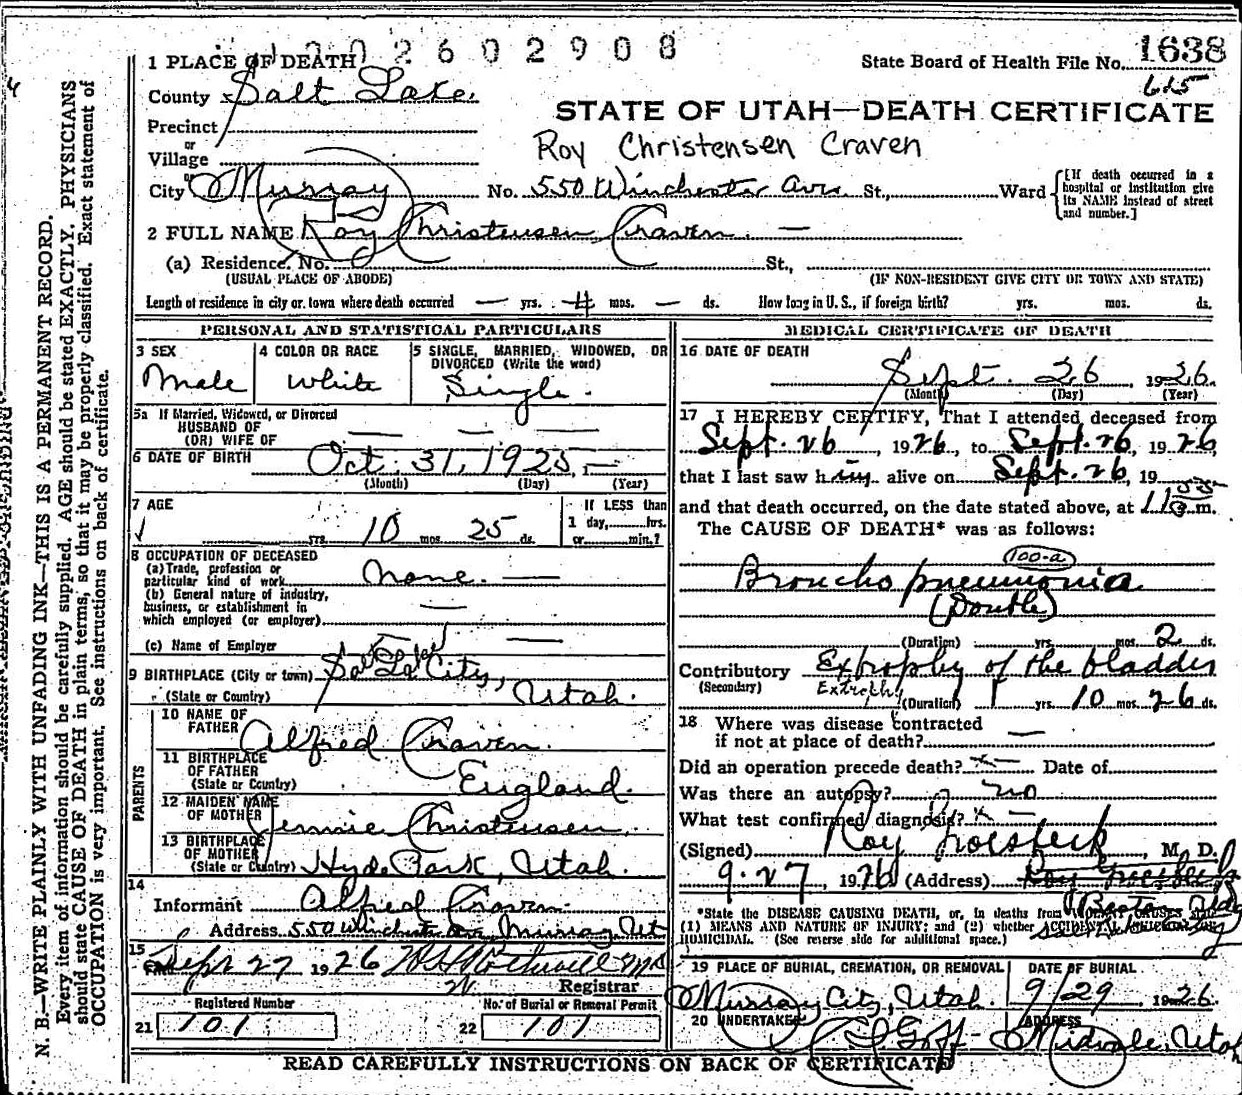 2602908
1638
615
1 PLACE OF DEATH
State Board of Health File No.
County Salt Lake.
STATE OF UTAH—DEATH CERTIFICATE
Precinct
or
Roy Christensen Craven
Village
or
City Murray No. 550 Winchester Ave. St., Ward
[If death occurred in a hospital or institution give its NAME instead of street and number.]
2 FULL NAME Roy Christensen Craven.
(a) Residence. No. St.,
(USUAL PLACE OF ABODE) (IF NON-RESIDENT GIVE CITY OR TOWN AND STATE)
Length of residence in city or town where death occurred — yrs. 4 mos. — ds. How long in U. S., if foreign birth? yrs. mos. ds.
PERSONAL AND STATISTICAL PARTICULARS
3 SEX
Male
4 COLOR OR RACE
White
5 SINGLE, MARRIED, WIDOWED, OR
DIVORCED (Write the word)
Single.
5a If Married, Widowed, or Divorced
HUSBAND OF
(OR) WIFE OF
6 DATE OF BIRTH Oct. 31, 1925,
(Month) (Day) (Year)
7 AGE
yrs. 10 mos. 25 ds.
If LESS than
1 day, hrs.
or min.?
8 OCCUPATION OF DECEASED
(a) Trade, profession or
particular kind of work None.
(b) General nature of industry,
business, or establishment in
which employed (or employer)
(c) Name of Employer
9 BIRTHPLACE (City or town) Salt Lake City,
(State or Country) Utah.
PARENTS
10 NAME OF
FATHER Alfred Craven.
11 BIRTHPLACE
OF FATHER
(State or Country) England.
12 MAIDEN NAME
OF MOTHER Jennie Christensen.
13 BIRTHPLACE
OF MOTHER
(State or Country) Hyde Park, Utah.
14
Informant Alfred Craven.
Address 550 Winchester Ave, Murray Ut
15
Sept 27 1926
Registrar
Registered Number
21 101
No. of Burial or Removal Permit
22 101
MEDICAL CERTIFICATE OF DEATH
16 DATE OF DEATH
Sept. 26, 1926.
(Month) (Day) (Year)
17 I HEREBY CERTIFY, That I attended deceased from
Sept. 26 1926, to Sept. 26, 1926,
that I last saw him alive on Sept. 26, 19
and that death occurred, on the date stated above, at 11 m.
The CAUSE OF DEATH* was as follows:
100-a
Broncho pneumonia
(Double)
(Duration) yrs. mos. 2 ds.
Contributory Extrophy of the bladder
(Secondary) Extrophy (Duration) 1 yrs. 10 mos. 26 ds.
18 Where was disease contracted
if not at place of death? —
Did an operation precede death? — Date of
Was there an autopsy? no
What test confirmed diagnosis? —
(Signed) Roy Groesbeck, M. D.
9-27, 1926 (Address) Roy Groesbeck
Boston Bldg
*State the DISEASE CAUSING DEATH, or, in deaths from VIOLENT CAUSES state
(1) MEANS AND NATURE OF INJURY; and (2) whether ACCIDENTAL, SUICIDAL OR
HOMICIDAL. (See reverse side for additional space.)
19 PLACE OF BURIAL, CREMATION, OR REMOVAL
Murray City, Utah.
DATE OF BURIAL
9/29 1926.
20 UNDERTAKER
Goff
ADDRESS
Midvale, Utah
READ CAREFULLY INSTRUCTIONS ON BACK OF CERTIFICATE
N. B.—WRITE PLAINLY WITH UNFADING INK—THIS IS A PERMANENT RECORD.
Every item of information should be carefully supplied. AGE should be stated EXACTLY. PHYSICIANS
should state CAUSE OF DEATH in plain terms, so that it may be properly classified. Exact statement of
OCCUPATION is very important. See instructions on back of certificate.